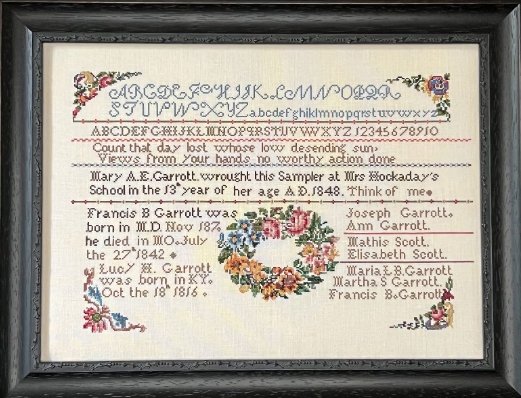 ABCDEFGHIJKLMNOPQR
STUVWXYZ abcdefghiklmnopqrstuvwxyz
ABCDEFGHIJKLMNOPQRSTUVWXYZ 12345678910
Count that day lost whose low desending sun
Views from Your hands no worthy action done
Mary A.E. Garrott wrought this Sampler at Mrs Hockaday's
School in the 13th year of her age A.D. 1848. Think of me
Francis B Garrott was
born in M.D. Nov
he died in MO. July
the 27th 1842
Lucy H. Garrott
was born in KY.
Oct the 18th 1816.
Joseph Garrott.
Ann Garrott.
Mathis Scott.
Elisabeth Scott.
Maria L B. Garrott
Martha S Garrott
Francis B. Garrott